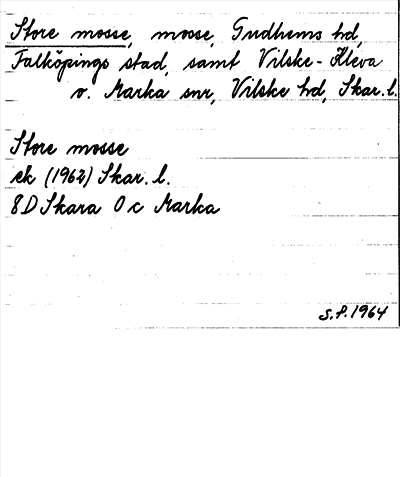 Store mosse, mosse, Gudhems hd,
Falköpings stad, samt Vilske-Kleva
o. Marka snr, Vilske hd, Skar. l.
Store mosse
ek (1962) Skar. l.
8D Skara 0c Marka
S.P. 1964